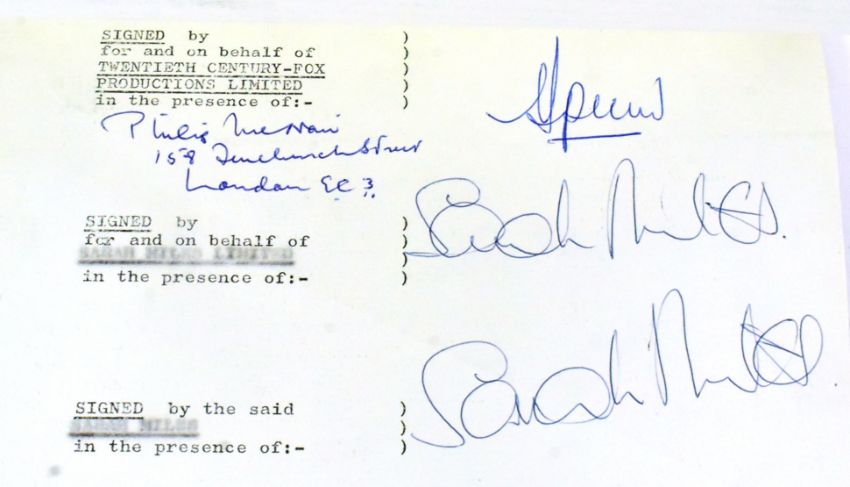 SIGNED by )
for and on behalf of )
TWENTIETH CENTURY-FOX )
PRODUCTIONS LIMITED )
in the presence of:- )
Philip
158 Fenchurch Street
London EC3
SIGNED by )
for and on behalf of )
SARAH MILES LIMITED )
in the presence of:- )
Sarah Miles.
SIGNED by the said )
SARAH MILES )
in the presence of:- )
Sarah Miles